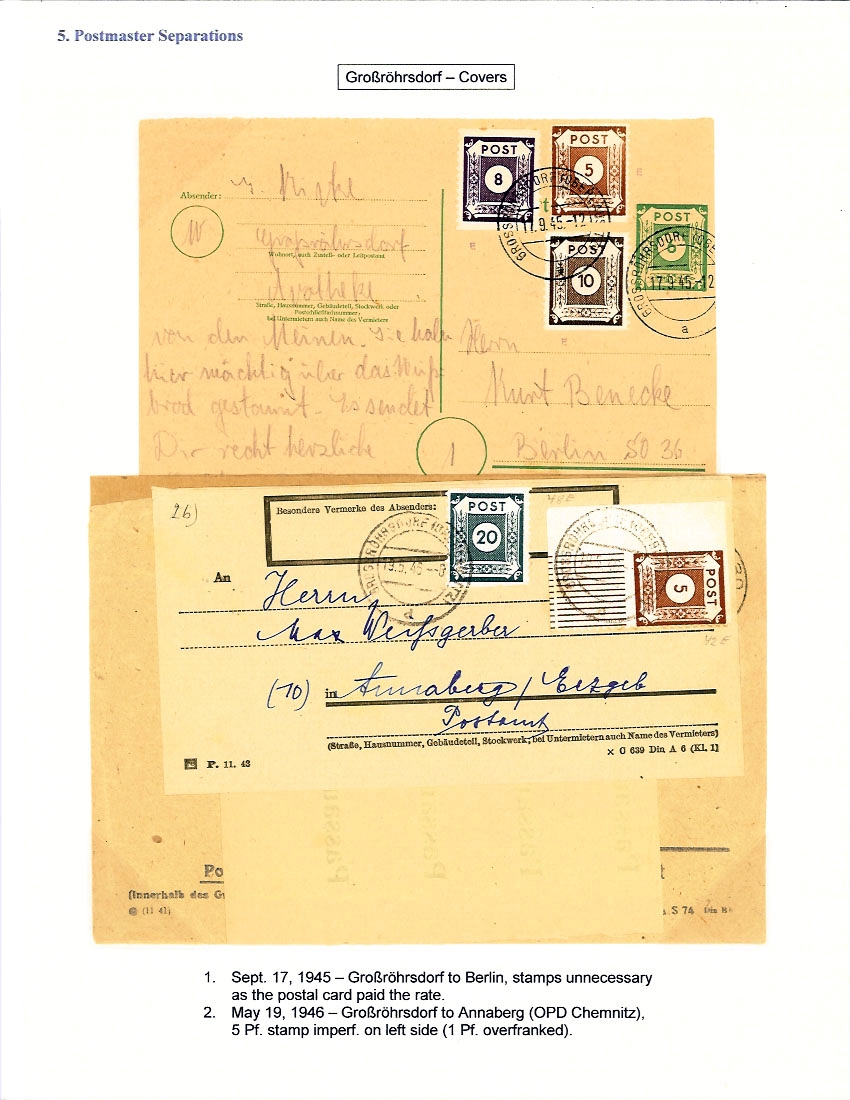 5. Postmaster Separations
Großröhrsdorf – Covers
POST
8
POST
5
POST
10
POST
6
GROSSRÖHRSDORF
17.9.45.-12
GROSSRÖHRSDORF
17.9.45-12
a
E
E
E
Absender:
Großröhrsdorf
Wohnort, auch Zustell- oder Leitpostamt
Apotheke
Straße, Hausnummer, Gebäudeteil, Stockwerk oder
Postschließfachnummer;
bei Untermietern auch Name des Vermieters
von den Meinen. Sie haben
hier mächtig über das
brod gestaunt. Es sendet
Dir recht herzliche
Herrn
Kurt Benecke
1
Berlin SO 36
26)
Besondere Vermerke des Absenders:
POST
20
42E
POST
5
42E
GROSSRÖHRSDORF
19.5.46-8
An
Herrn
Max Weißgerber
(10) in Annaberg / Erzgeb
Postamt
(Straße, Hausnummer, Gebäudeteil, Stockwerk; bei Untermietern auch Name des Vermieters)
P. 11. 43
× C 639 Din A 6 (Kl. 1)
Passau
Po
t
(Innerhalb des G
(11 41)
S 74 Din B
1. Sept. 17, 1945 – Großröhrsdorf to Berlin, stamps unnecessary
as the postal card paid the rate.
2. May 19, 1946 – Großröhrsdorf to Annaberg (OPD Chemnitz),
5 Pf. stamp imperf. on left side (1 Pf. overfranked).